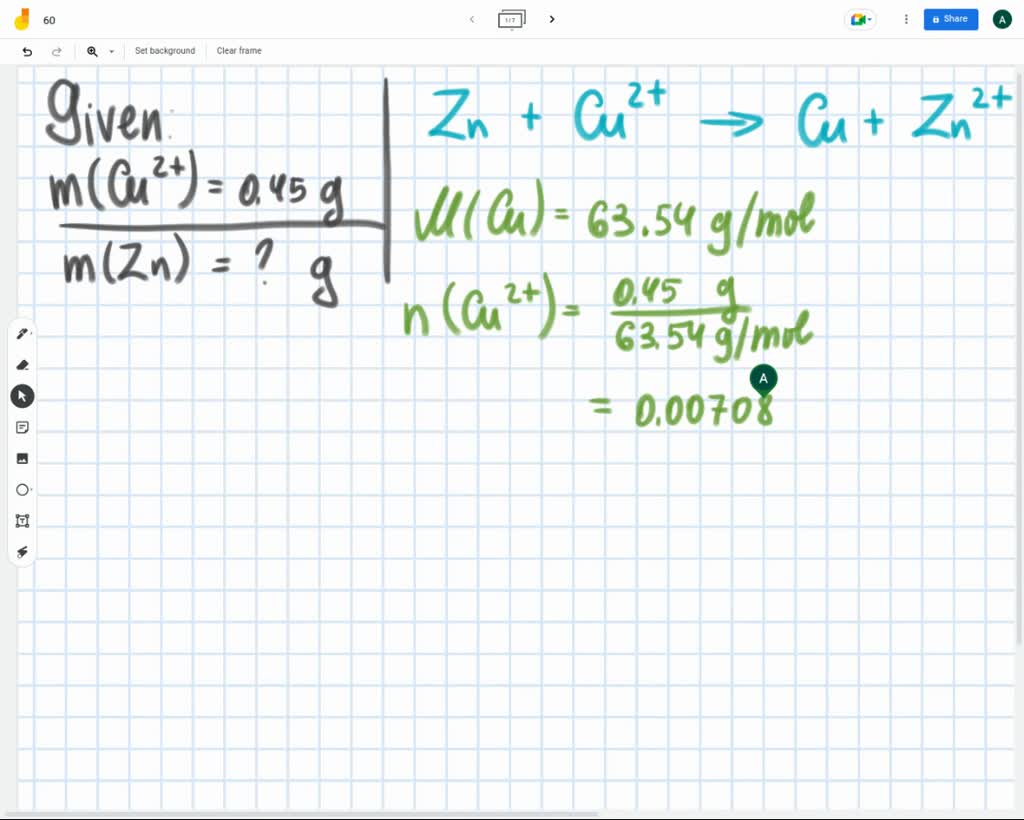 60
1/7
Share
A
Set background
Clear frame
Given:
m(Cu²⁺) = 0.45 g
m(Zn) = ? g
Zn + Cu²⁺ → Cu + Zn²⁺
M(Cu) = 63.54 g/mol
n(Cu²⁺) = 0.45 g
63.54 g/mol
= 0.00708
A